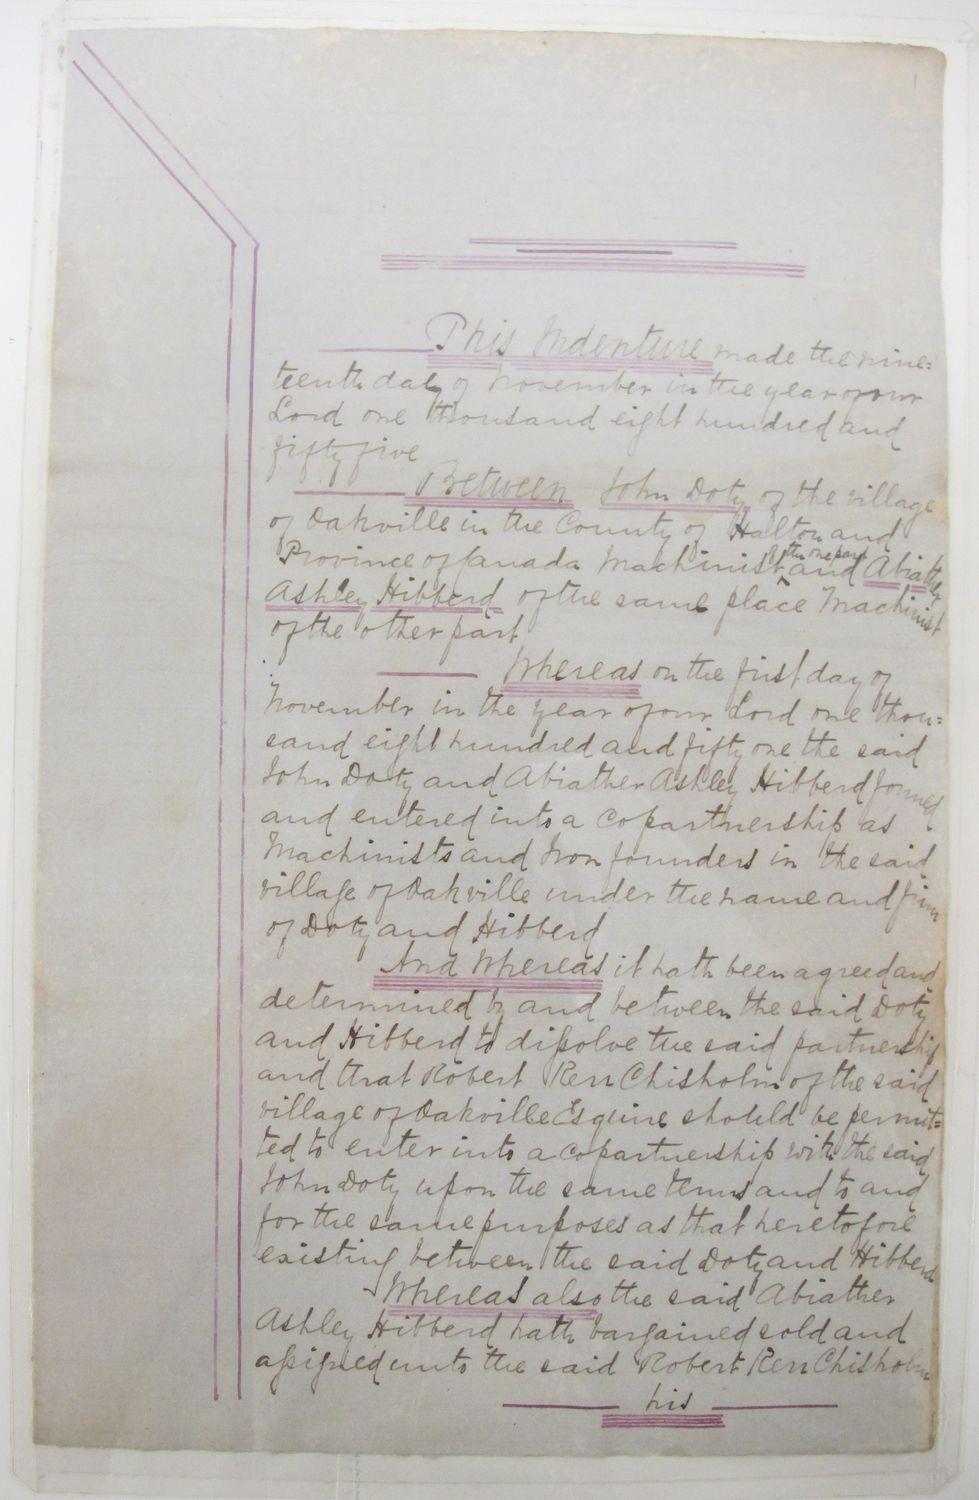 This Indenture made the nine=
teenth day of November in the year of our
Lord one thousand eight hundred and
fifty five
Between John Doty of the village
of Oakville in the County of Halton and
Province of Canada Machinist of the one part and Abiather
Ashley Hibberd of the same place Machinist
of the other part
Whereas on the first day of
November in the year of our Lord one thou=
sand eight hundred and fifty one the said
John Doty and Abiather Ashley Hibberd formed
and entered into a Copartnership as
Machinists and Iron founders in the said
village of Oakville under the name and firm
of Doty and Hibberd
And Whereas it hath been agreed and
determined by and between the said Doty
and Hibberd to dissolve the said partnership
and that Robert Kerr Chisholm of the said
village of Oakville Esquire should be permit=
ted to enter into a copartnership with the said
John Doty upon the same terms and to and
for the same purposes as that heretofore
existing between the said Doty and Hibberd
Whereas also the said Abiather
Ashley Hibberd hath bargained sold and
assigned unto the said Robert Kerr Chisholm
his